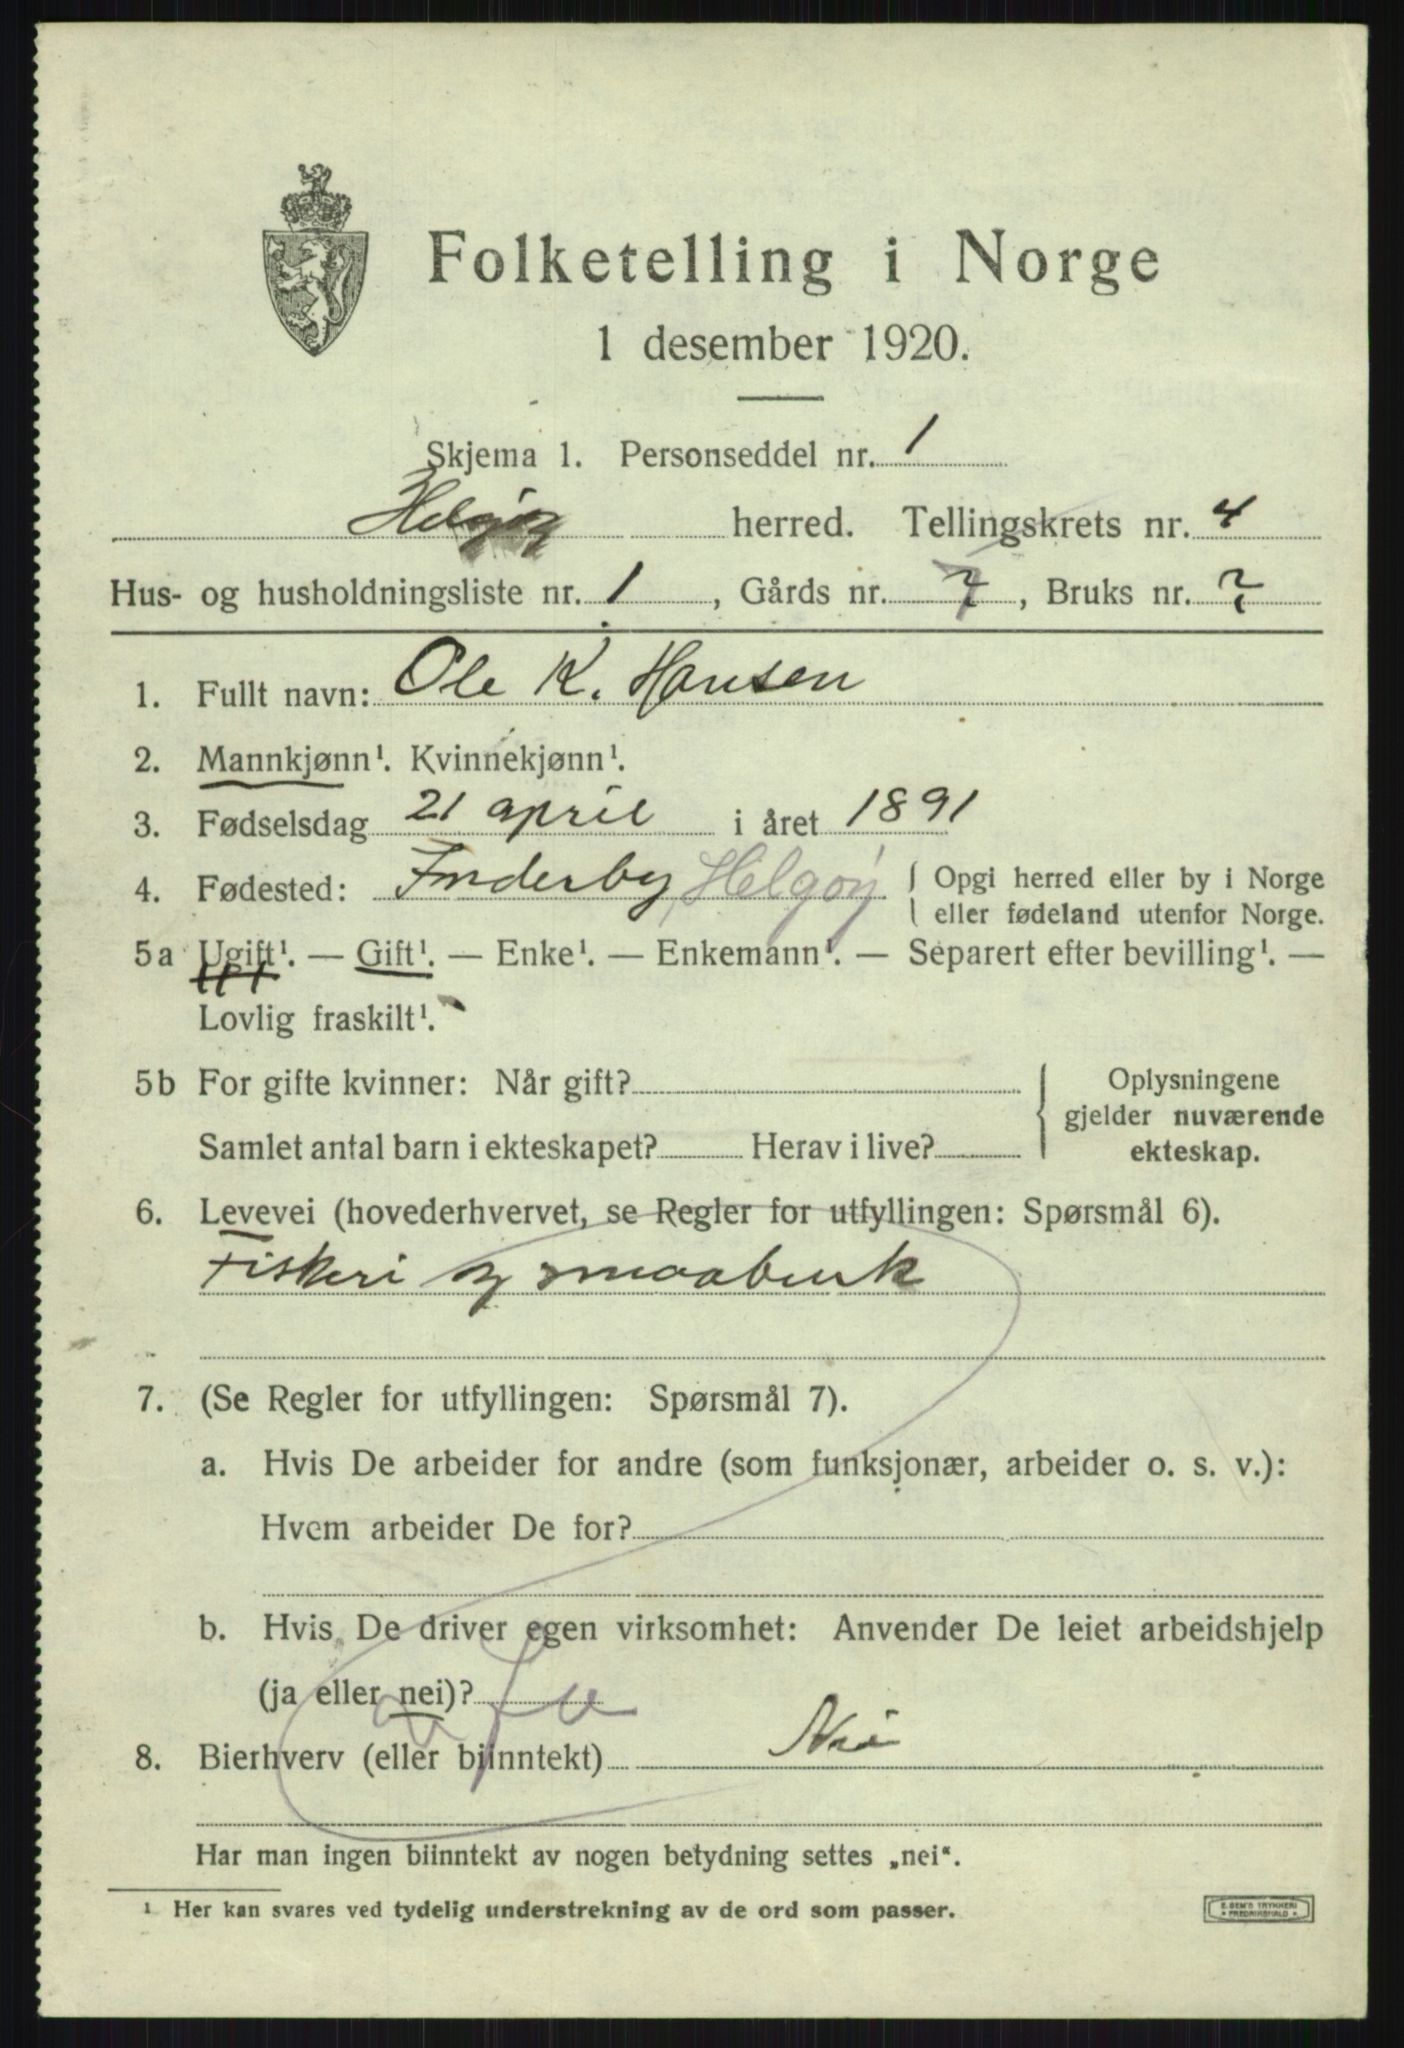 Folketelling i Norge
1 desember 1920.
Skjema 1. Personseddel nr. 1
Helgøy herred. Tellingskrets nr. 4
Hus- og husholdningsliste nr. 1, Gårds nr. 7, Bruks nr. ?
1. Fullt navn: Ole K. Hansen
2. Mannkjønn¹. Kvinnekjønn¹.
3. Fødselsdag 21 april i året 1891
4. Fødested: Inderby, Helgøy { Opgi herred eller by i Norge
eller fødeland utenfor Norge.
5a Ugift¹. — Gift¹. — Enke¹. — Enkemann¹. — Separert efter bevilling¹. —
Lovlig fraskilt¹.
5b For gifte kvinner: Når gift? } Oplysningene
gjelder nuværende
Samlet antal barn i ekteskapet? Herav i live? ekteskap.
6. Levevei (hovederhvervet, se Regler for utfyllingen: Spørsmål 6).
Fiskeri og smaabruk
7. (Se Regler for utfyllingen: Spørsmål 7).
a. Hvis De arbeider for andre (som funksjonær, arbeider o. s. v.):
Hvem arbeider De for?
b. Hvis De driver egen virksomhet: Anvender De leiet arbeidshjelp
(ja eller nei)?
8. Bierhverv (eller biinntekt) Nei
Har man ingen biinntekt av nogen betydning settes „nei“.
¹ Her kan svares ved tydelig understrekning av de ord som passer.
E. SEM'S TRYKKERI
FREDRIKSHALD